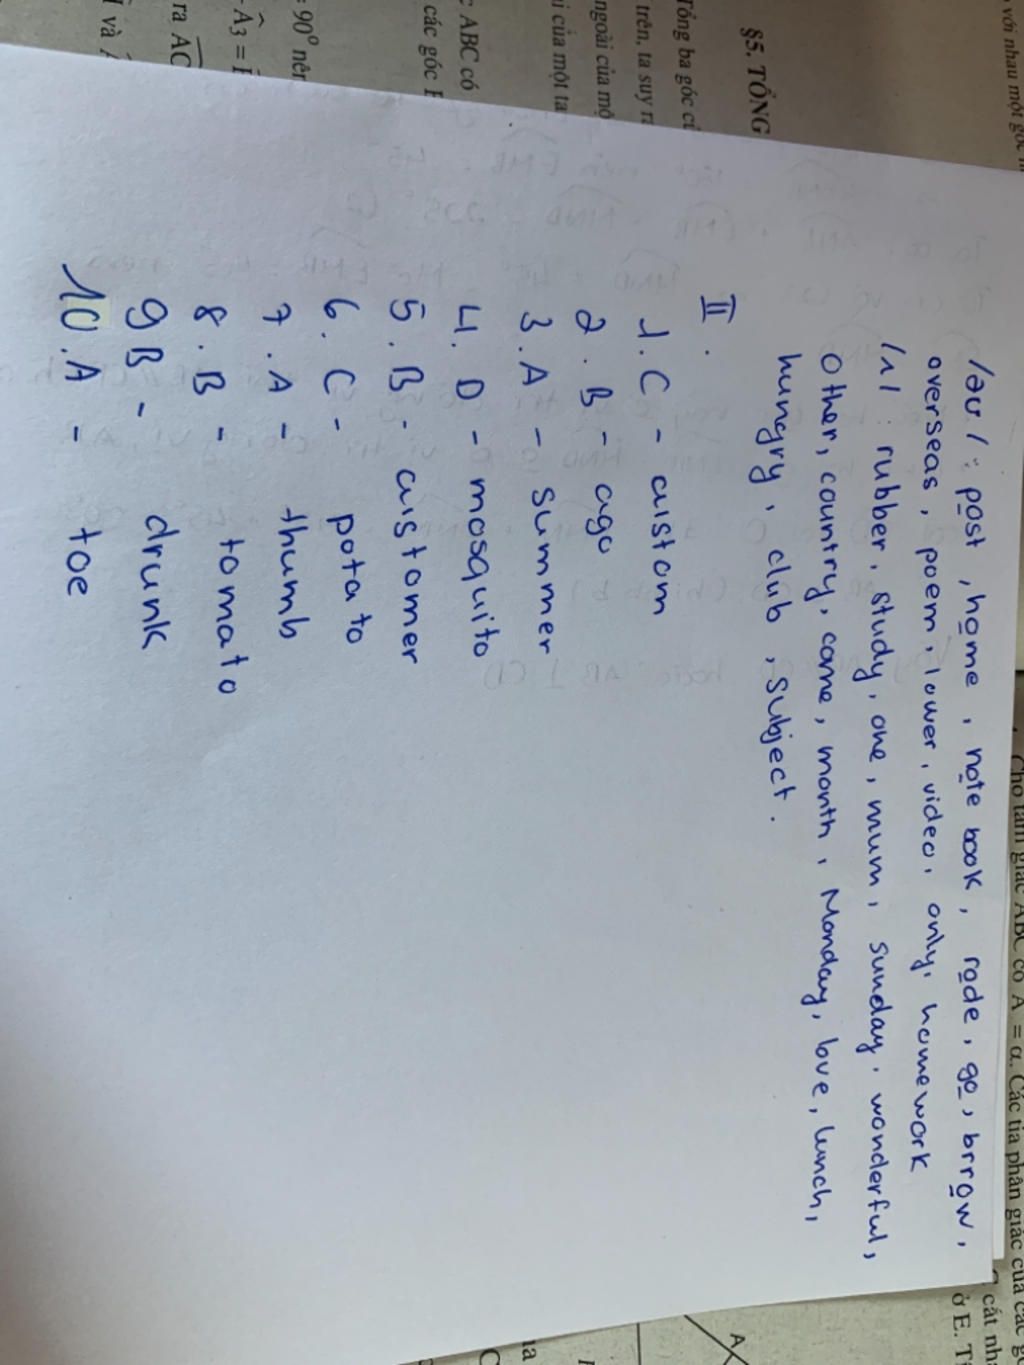 /əʊ/: post, home, note book, rode, go, brrow,
overseas, poem, lower, video, only, homework
/ʌ/ rubber, study, one, mum, sunday, wonderful,
Other, country, come, month, Monday, love, lunch,
hungry, club, subject.
II.
1. C - custom
2. B - ago
3. A - summer
4. D - mosquito
5. B - customer
6. C - potato
7. A - thumb
8. B - tomato
9 B - drunk
10. A - toe
§5. TỔNG
Tổng ba góc
trên, ta suy ra
ngoài của
của một
ABC có
các góc
= 90° nên
ra AC
và
với nhau một góc
Cho tam giác ABC có A = α. Các tia phân giác của các
cắt
ở E.
A